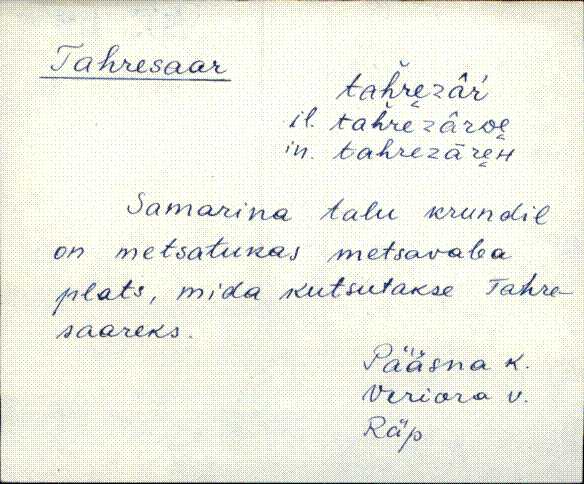 Tahresaar
taȟrę̆zâŕ
il. taȟrĕzârɒę
in. tahrĕzāręн
Samarina talu krundil
on metsatukas metsavaba
plats, mida kutsutakse Tahre-
saareks.
Pääsna k.
Veriora v.
Räp